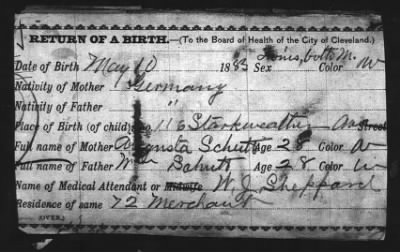 RETURN OF A BIRTH.—(To the Board of Health of the City of Cleveland.)
Date of Birth May 10 1883 Sex Twins, both M. Color W
Nativity of Mother Germany
Nativity of Father "
Place of Birth (of child) No. 116 Starkweather Av Street
Full name of Mother Augusta Schutt Age 28 Color W
Full name of Father Wm Schutt Age 28 Color W
Name of Medical Attendant or Midwife W. J. Sheppard
Residence of same 72 Merchant
(OVER.)